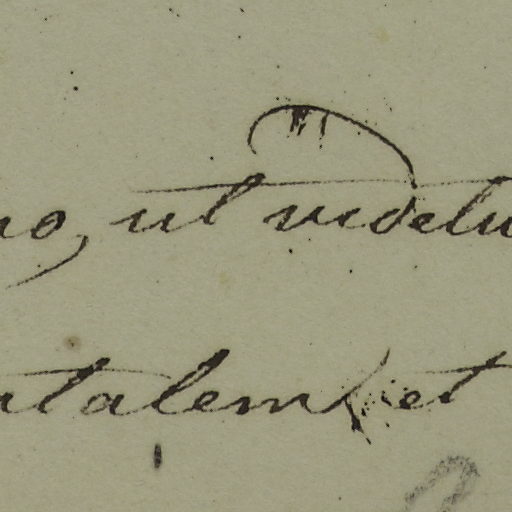 no, ut videtu
atalem et